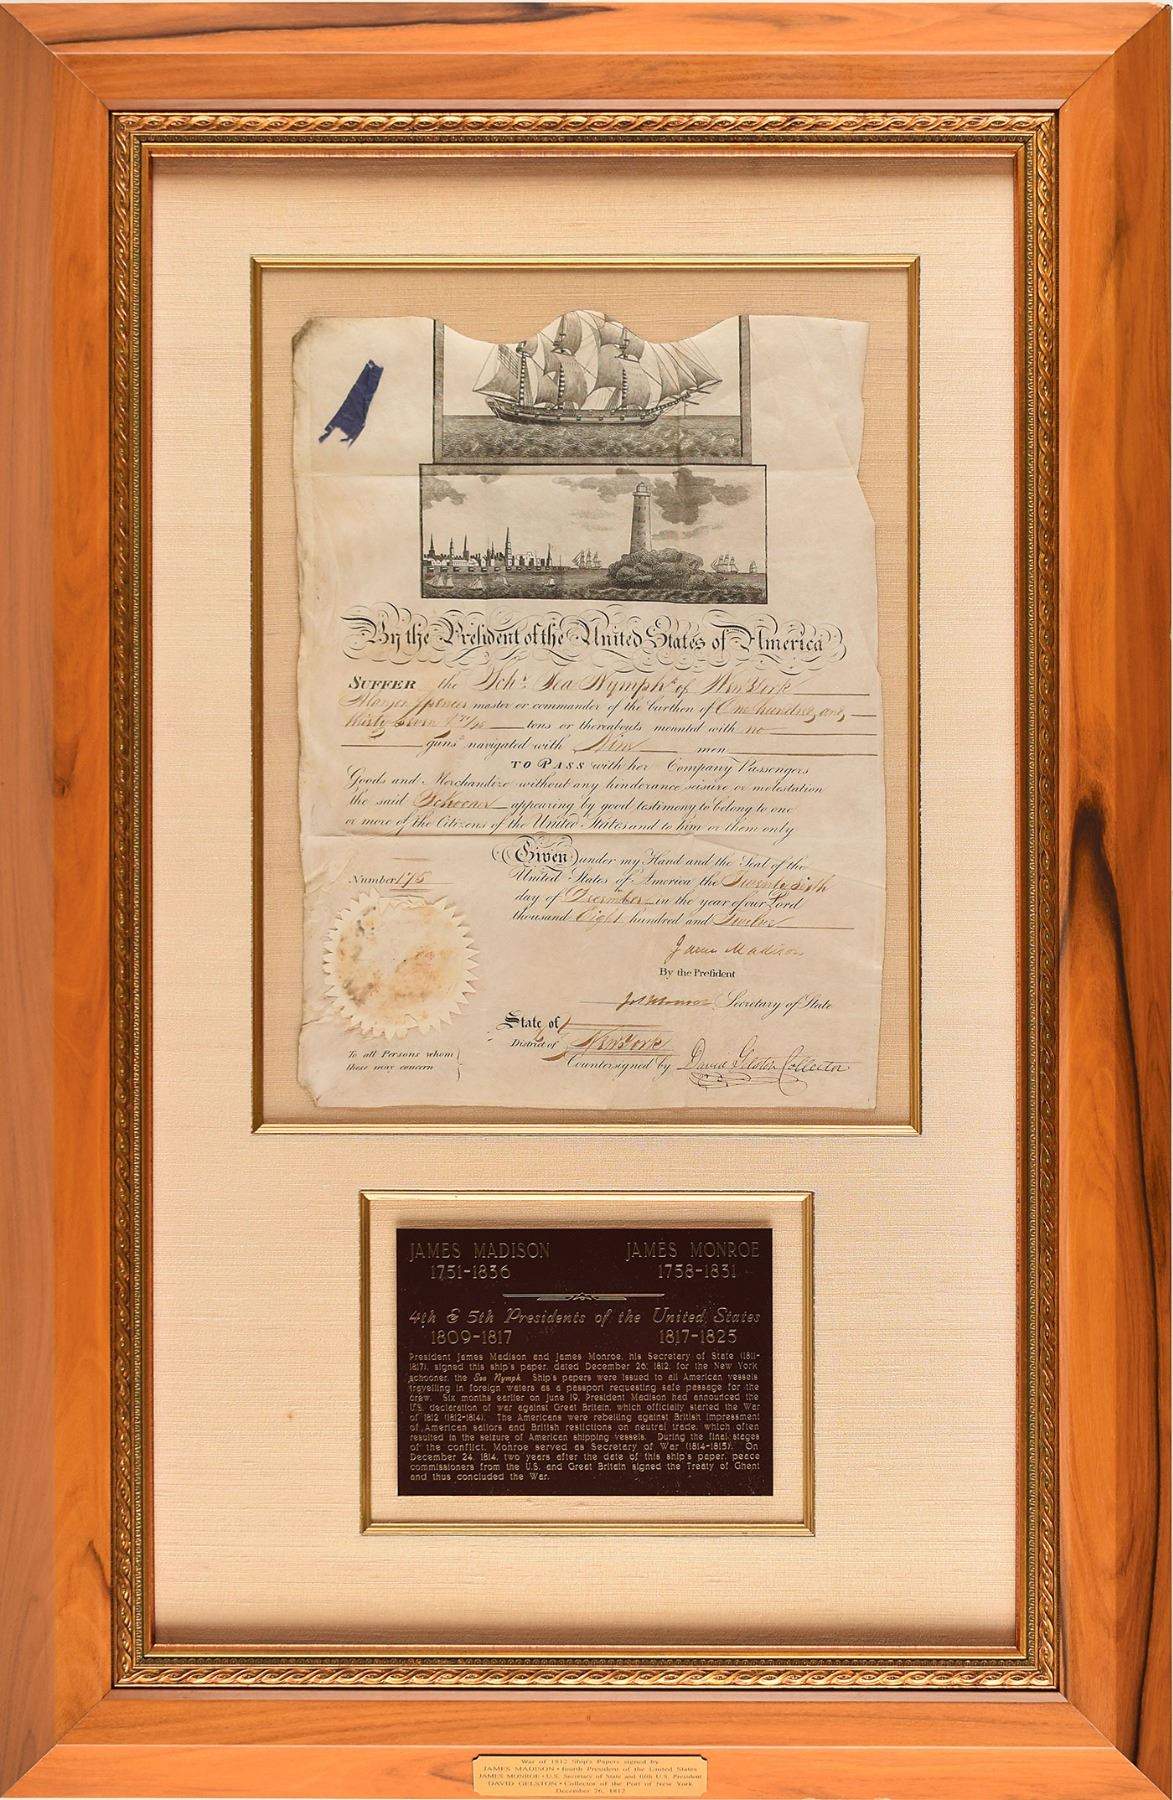 By the President of the United States of America
SUFFER the Schr. Sea Nymph of New York
Spencer master or commander of the burthen of One hundred and
thirty seven tons or thereabouts mounted with no
guns navigated with Nine men
TO PASS with her Company Passengers
Goods and Merchandize without any hinderance seisure or molestation
the said Schooner appearing by good testimony to belong to one
or more of the Citizens of the United States and to him or them only
Given under my Hand and the Seal of the
United States of America the Twenty sixth
day of December in the year of our Lord
thousand Eight hundred and Twelve
Number 175
James Madison
By the President
Jas Monroe Secretary of State
State of
District of New York
Countersigned by David Gelston Collector
To all Persons whom
these may concern
JAMES MADISON JAMES MONROE
1751-1836 1758-1831
4th & 5th Presidents of the United States
1809-1817 1817-1825
President James Madison and James Monroe, his Secretary of State (1811-
1817), signed this ship's paper, dated December 26, 1812, for the New York
schooner, the Sea Nymph. Ship's papers were issued to all American vessels
travelling in foreign waters as a passport requesting safe passage for the
crew. Six months earlier on June 19, President Madison had announced the
U.S. declaration of war against Great Britain, which officially started the War
of 1812 (1812-1814). The Americans were rebelling against British impressment
of American sailors and British restictions on neutral trade, which often
resulted in the seizure of American shipping vessels. During the final stages
of the conflict, Monroe served as Secretary of War (1814-1815). On
December 24, 1814, two years after the date of this ship's paper, peace
commissioners from the U.S. and Great Britain signed the Treaty of Ghent
and thus concluded the War.
War of 1812 Ship's Papers signed by
JAMES MADISON • fourth President of the United States
JAMES MONROE • U.S. Secretary of State and fifth U.S. President
DAVID GELSTON • Collector of the Port of New York
December 26, 1812